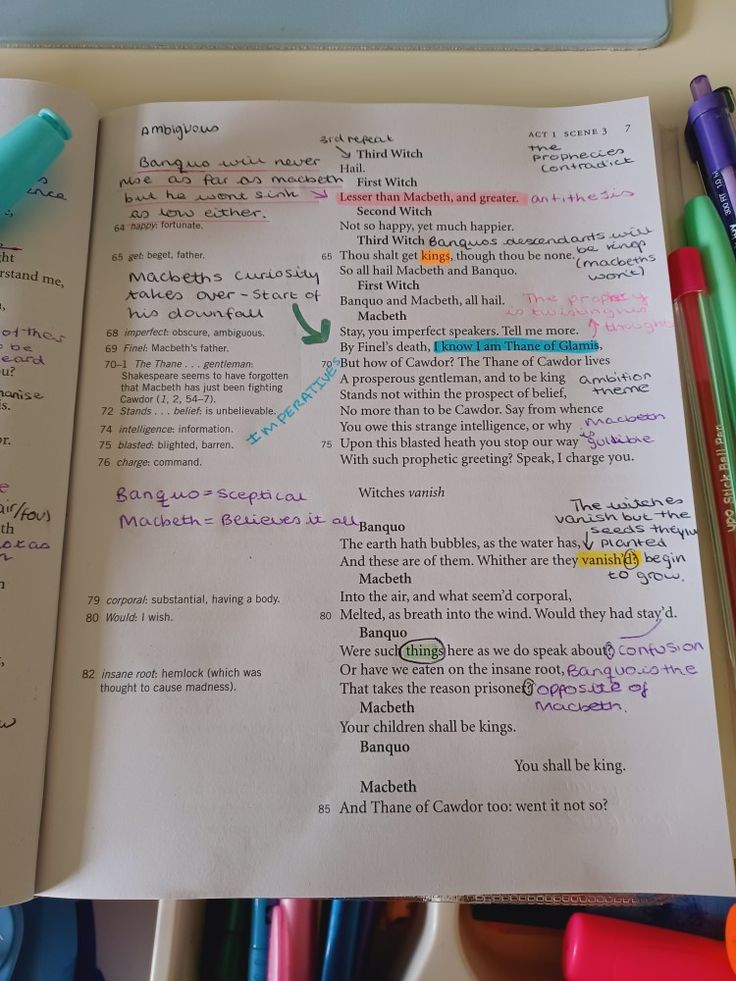 Ambigious
3rd repeat
ACT 1 SCENE 3 7
the
prophecies
contradict
Banquo will never
rise as far as macbeth
but he wont sink
as low either.
Third Witch
Hail.
First Witch
Lesser than Macbeth, and greater. antithesis
Second Witch
64 happy: fortunate.
Not so happy, yet much happier.
Third Witch Banquos descendants will
be kings
(macbeths
won't)
65 get: beget, father.
65 Thou shalt get kings, though thou be none.
So all hail Macbeth and Banquo.
First Witch
Banquo and Macbeth, all hail.
Macbeths curiosity
takes over - Start of
his downfall
The
is
thought
Macbeth
68 imperfect: obscure, ambiguous.
Stay, you imperfect speakers. Tell me more.
69 Finel: Macbeth's father.
By Finel's death, I know I am Thane of Glamis,
70–1 The Thane . . . gentleman:
Shakespeare seems to have forgotten
that Macbeth has just been fighting
Cawdor (1, 2, 54–7).
70 But how of Cawdor? The Thane of Cawdor lives
A prosperous gentleman, and to be king
ambition
theme
Stands not within the prospect of belief,
72 Stands . . . belief: is unbelievable.
No more than to be Cawdor. Say from whence
74 intelligence: information.
You owe this strange intelligence, or why
macbeth
is
gullible
75 blasted: blighted, barren.
75 Upon this blasted heath you stop our way
76 charge: command.
With such prophetic greeting? Speak, I charge you.
IMPERATIVES
Witches vanish
Banquo = Sceptical
Macbeth = Believes it all
The witches
vanish but the
seeds they've
planted
begin
to grow.
Banquo
The earth hath bubbles, as the water has,
And these are of them. Whither are they vanish'd?
Macbeth
79 corporal: substantial, having a body.
Into the air, and what seem'd corporal,
80 Would: I wish.
80 Melted, as breath into the wind. Would they had stay'd.
Banquo
Were such things here as we do speak about? confusion
82 insane root: hemlock (which was
thought to cause madness).
Or have we eaten on the insane root, Banquo is the
That takes the reason prisoner? opposite of
Macbeth.
Macbeth
Your children shall be kings.
Banquo
You shall be king.
Macbeth
85 And Thane of Cawdor too: went it not so?
rstand me,